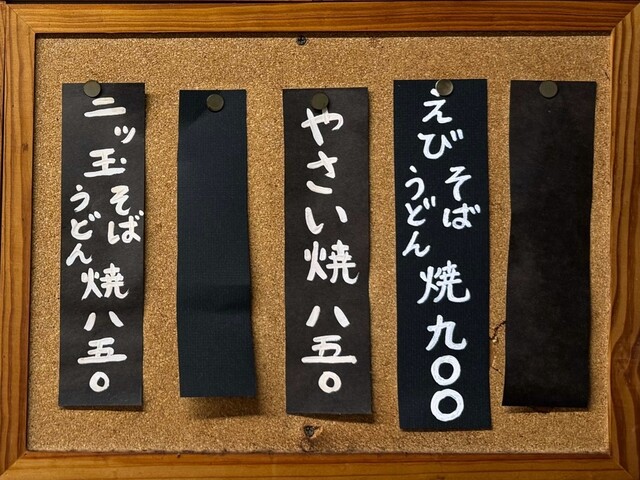 えび そば うどん 焼 九〇〇
やさい焼 八五〇
二ッ玉 そば うどん 焼 八五〇